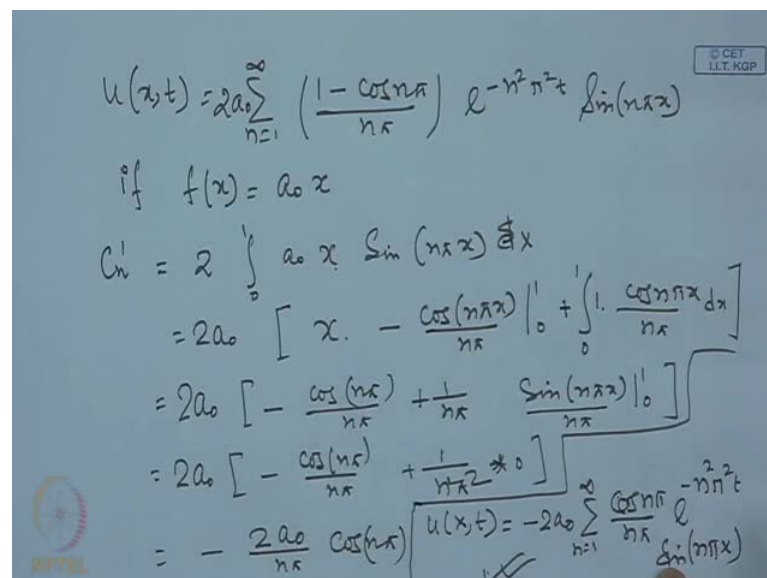 © CET
I.I.T. KGP
u(x,t) = 2a₀ ∑_{n=1}^{∞} ((1 - cosnπ)/nπ) e^{-n²π²t} Sin(nπx)
if f(x) = a₀ x
Cn' = 2 ∫_0^1 a₀ x Sin(nπx) dx
= 2a₀ [ x. - cos(nπx)/nπ |_0^1 + ∫_0^1 1. cosnπx/nπ dx ]
= 2a₀ [ - cos(nπ)/nπ + 1/nπ Sin(nπx)/nπ |_0^1 ]
= 2a₀ [ - cos(nπ)/nπ + 1/nπ² * 0 ]
= - 2a₀/nπ Cos(nπ)
u(x,t) = -2a₀ ∑_{n=1}^{∞} cosnπ/nπ e^{-n²π²t}
Sin(nπx)